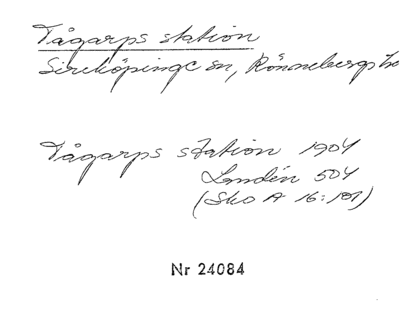 Tågarps station
Sireköpinge sn, Rönnebergs hd
Tågarps station 1904
Landén 504
(Sko A 16:101)
Nr 24084